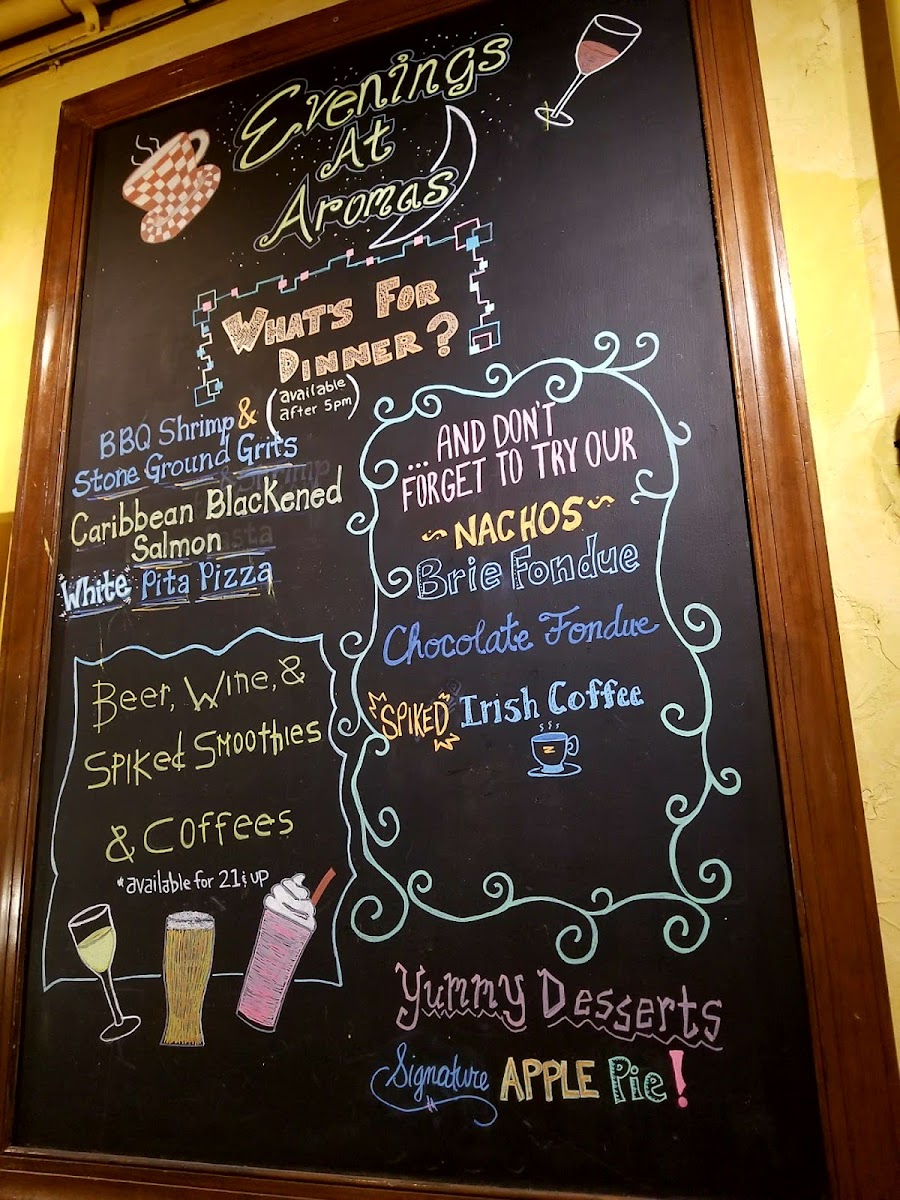 Evenings
At
Aromas
WHAT'S FOR
DINNER?
(available
after 5pm)
BBQ Shrimp &
Stone Ground Grits
Caribbean Blackened
Salmon
"White" Pita Pizza
Beer, Wine, &
Spiked Smoothies
& Coffees
*available for 21 & up
...AND DON'T
FORGET TO TRY OUR
~NACHOS~
Brie Fondue
Chocolate Fondue
SPIKED Irish Coffee
Yummy Desserts
Signature APPLE Pie!